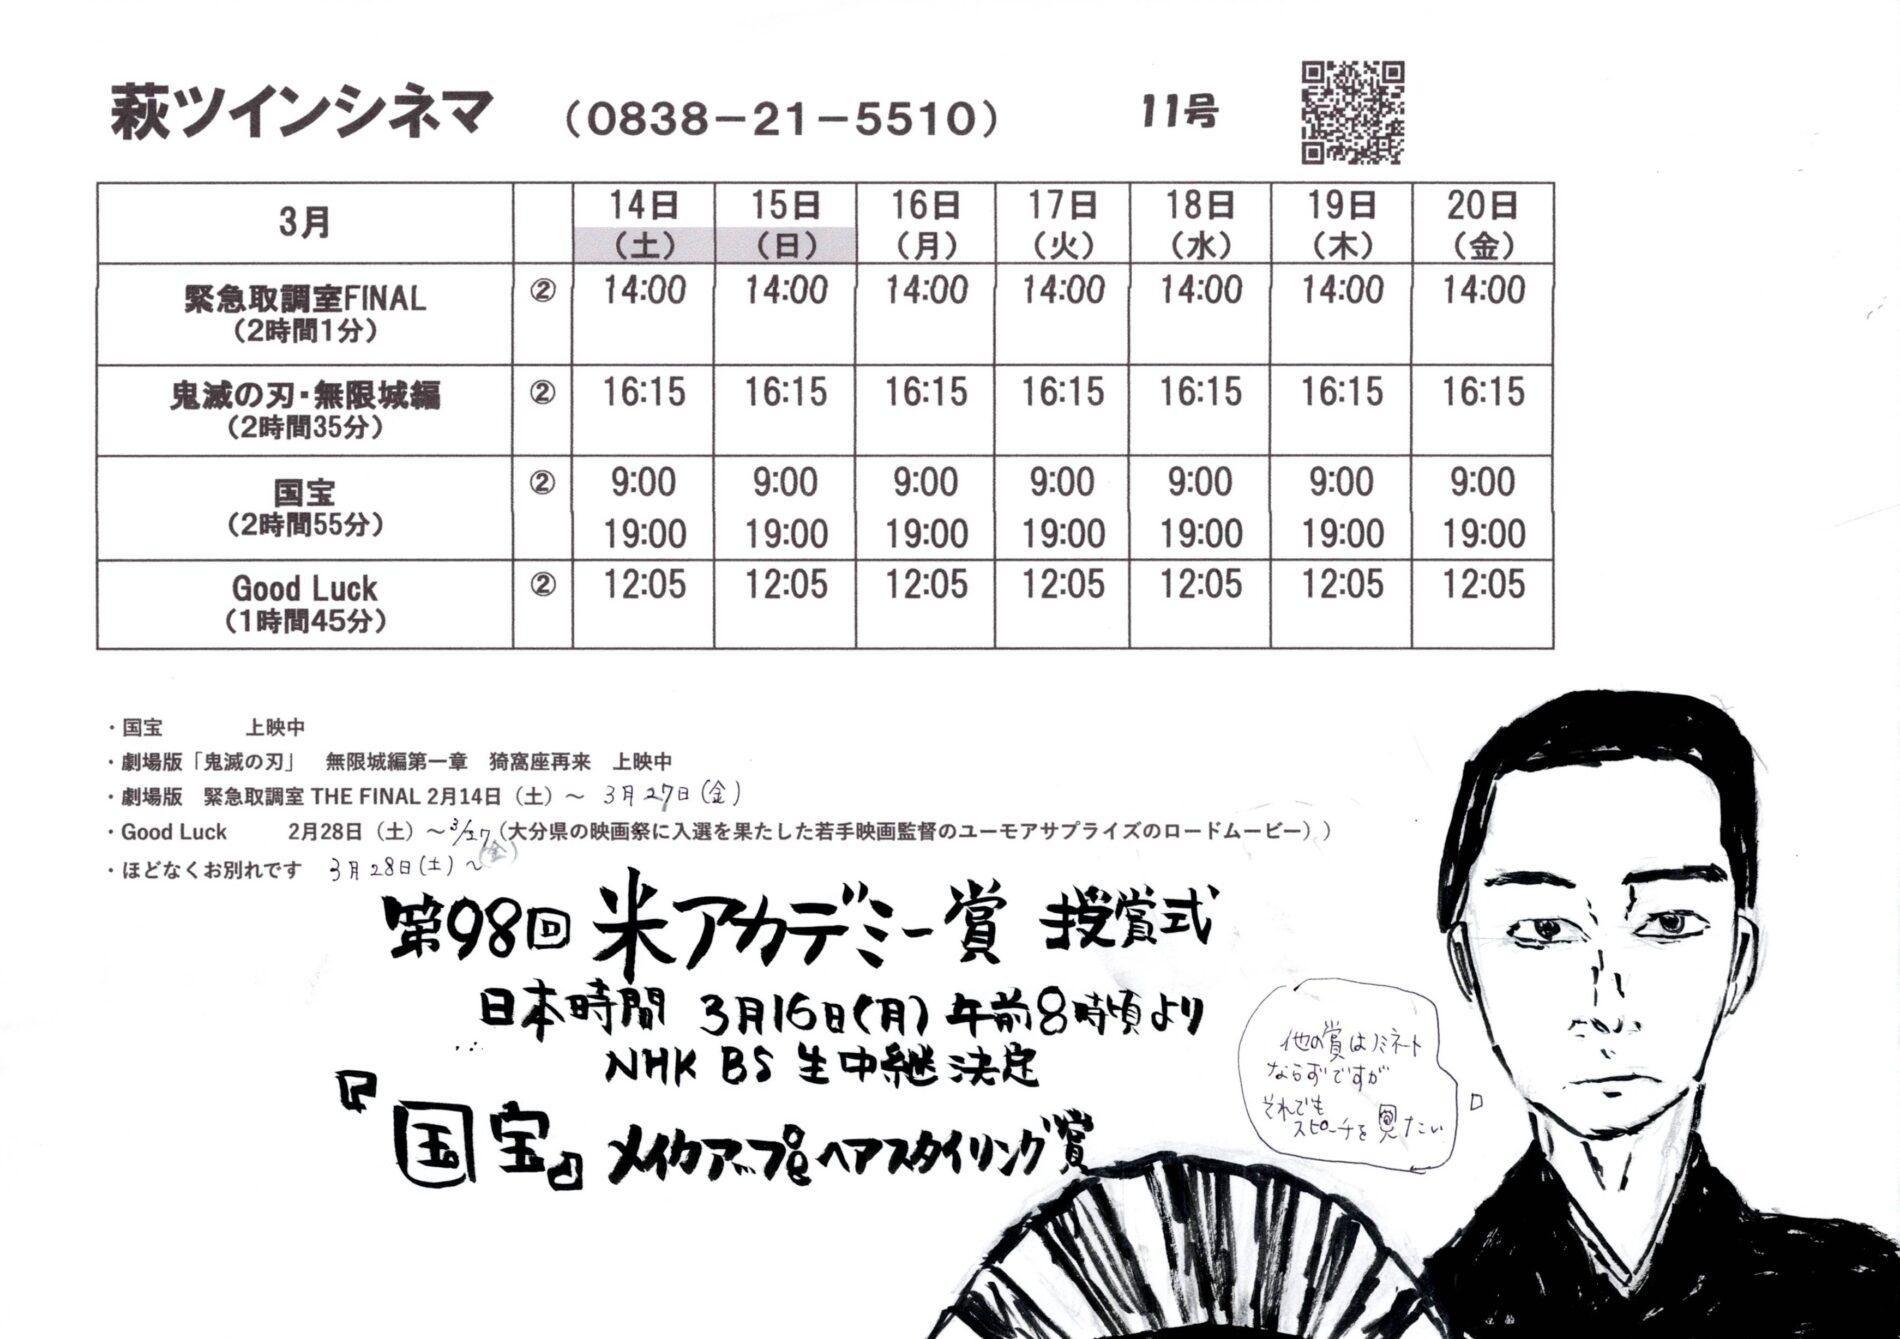 萩ツインシネマ （0838－21－5510） 11号
3月 14日 15日 16日 17日 18日 19日 20日
（土） （日） （月） （火） （水） （木） （金）
緊急取調室FINAL ② 14:00 14:00 14:00 14:00 14:00 14:00 14:00
（2時間1分）
鬼滅の刃・無限城編 ② 16:15 16:15 16:15 16:15 16:15 16:15 16:15
（2時間35分）
国宝 ② 9:00 9:00 9:00 9:00 9:00 9:00 9:00
（2時間55分） 19:00 19:00 19:00 19:00 19:00 19:00 19:00
Good Luck ② 12:05 12:05 12:05 12:05 12:05 12:05 12:05
（1時間45分）
・国宝 上映中
・劇場版「鬼滅の刃」 無限城編第一章 猗窩座再来 上映中
・劇場版 緊急取調室 THE FINAL 2月14日（土）～ 3月27日(金)
・Good Luck 2月28日（土）～3/27(金)（大分県の映画祭に入選を果たした若手映画監督のユーモアサプライズのロードムービー））
・ほどなくお別れです 3月28日(土)～
第98回 米アカデミー賞 授賞式
日本時間 3月16日(月) 午前8時頃より
NHK BS 生中継 決定
『国宝』 メイクアップ&ヘアスタイリング賞
他の賞はノミネート
ならずですが
それでも
スピーチを見たい